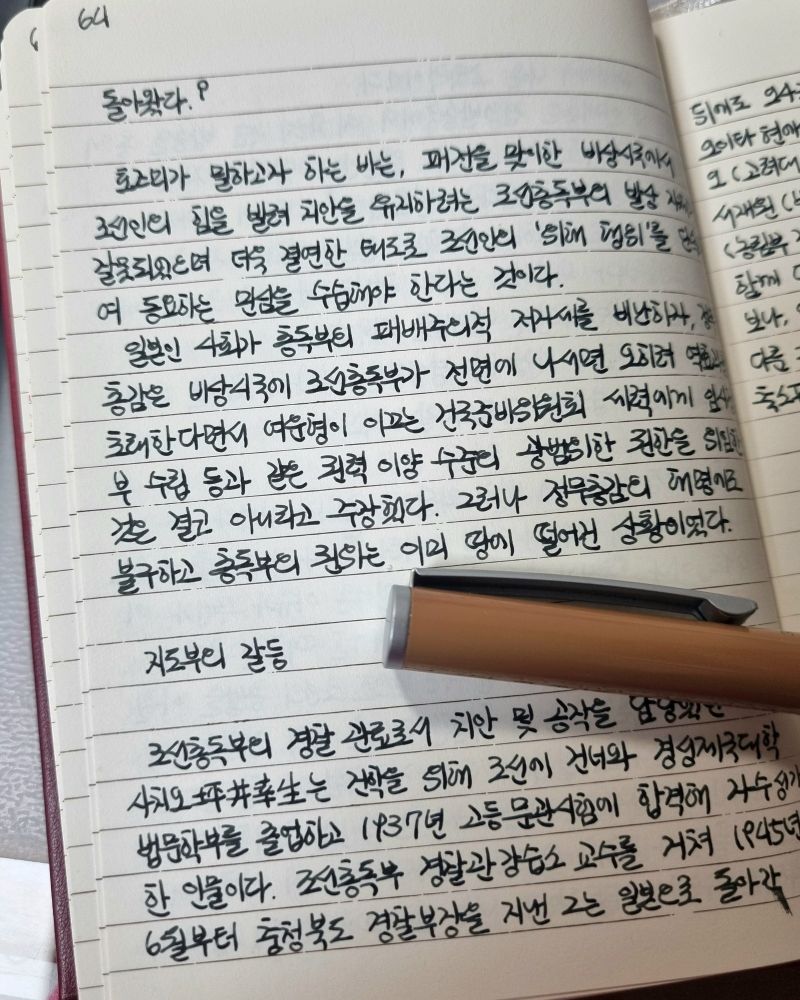 64
돌아왔다.9
호즈미가 말하고자 하는 바는, 패전을 맞이한 비상시국에서
조선인의 힘을 빌려 치안을 유지하려는 조선총독부의 발상
잘못되었으며 더욱 결연한 태도로 조선인의 '위해 행위'를
여 동요하는 민심을 수습해야 한다는 것이다.
일본인 사회가 총독부의 패배주의적 저자세를 비난하자,
총감은 비상시국에 조선총독부가 전면에 나서면 오히려
초래한다면서 여운형이 이끄는 건국준비위원회 세력에게
부 수립 등과 같은 권력 이양 수준의 광범위한 권한을 위임한
것은 결코 아니라고 주장했다. 그러나 정무총감의 해명에도
불구하고 총독부의 권위는 이미 땅에 떨어진 상황이었다.
지도부의 갈등
조선총독부의 경찰 관료로서 치안 및 공작을 담당했던
사치오坪井幸生는 진학을 위해 조선에 건너와 경성제국대학
법문학부를 졸업하고 1937년 고등문관시험에 합격해
한 인물이다. 조선총독부 경찰관강습소 교수를 거쳐 1945년
6월부터 충청북도 경찰부장을 지낸 그는 일본으로 돌아간
뒤에도
오이타현에
(고려대
서재원
(농림부
함께
보나,
다른